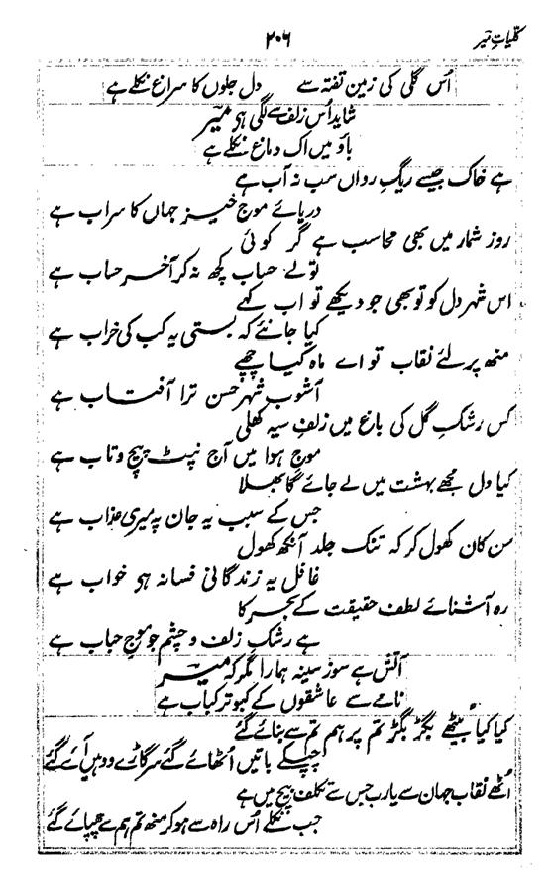 کلیاتِ میر
۲۰۶
اُس گلی کی زمین تفتہ سے دل جلوں کا سراغ نکلے ہے
شاید اُس زلف سے لگی ہو میرؔ
باؤ میں اک دماغ نکلے ہے
ہے خاک جیسے ریگِ رواں سب نہ آب ہے
دریائے موج خیز جہاں کا سراب ہے
روز شمار میں بھی محاسب ہے گر کوئی
تو بے حساب کچھ نہ کر آخر حساب ہے
اس شہرِ دل کو تو بھی جو دیکھے تو اب کہے
کیا جانئے کہ بستی یہ کب کی خراب ہے
منھ پر لئے نقاب تو اے ماہ کیا چھپے
آشوبِ شہر حسن ترا آفتاب ہے
کس رشکِ گل کی باغ میں زلفِ سیہ کھلی
موجِ ہوا میں آج نپٹ پیچ و تاب ہے
کیا دل مجھے بہشت میں لے جائے گا بھلا
جس کے سبب یہ جان پہ میری عذاب ہے
سن کان کھول کر کہ تنک جلد آنکھ کھول
غافل یہ زندگانی فسانہ ہی خواب ہے
رہ آشنائے لطف حقیقت کے بحر کا
ہے رشکِ زلف و چشم جو موج حباب ہے
آتش ہے سوزِ سینہ ہمارا مگر کہ میرؔ
نامے سے عاشقوں کے کبوتر کباب ہے
کیا کیا بیٹھے بگڑ بگڑ تم پر ہم تم سے بنائے گئے
چپکے باتیں اُٹھائے گئے سر گاڑے ووہیں آئے گئے
اُٹھے نقاب جہان سے یارب جس سے تکلف بیچ میں ہے
جب نکلے اُس راہ سے ہو کر منھ تم ہم سے چھپائے گئے